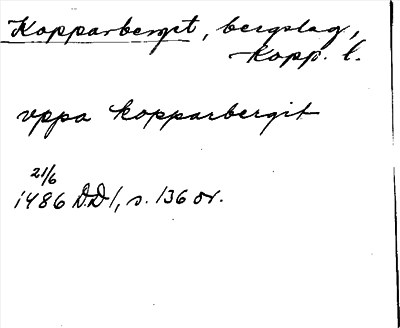 Kopparberget, bergslag,
Kopp. l.
vppa kopparbergit
21/6
1486 DD 1, s. 136 or.